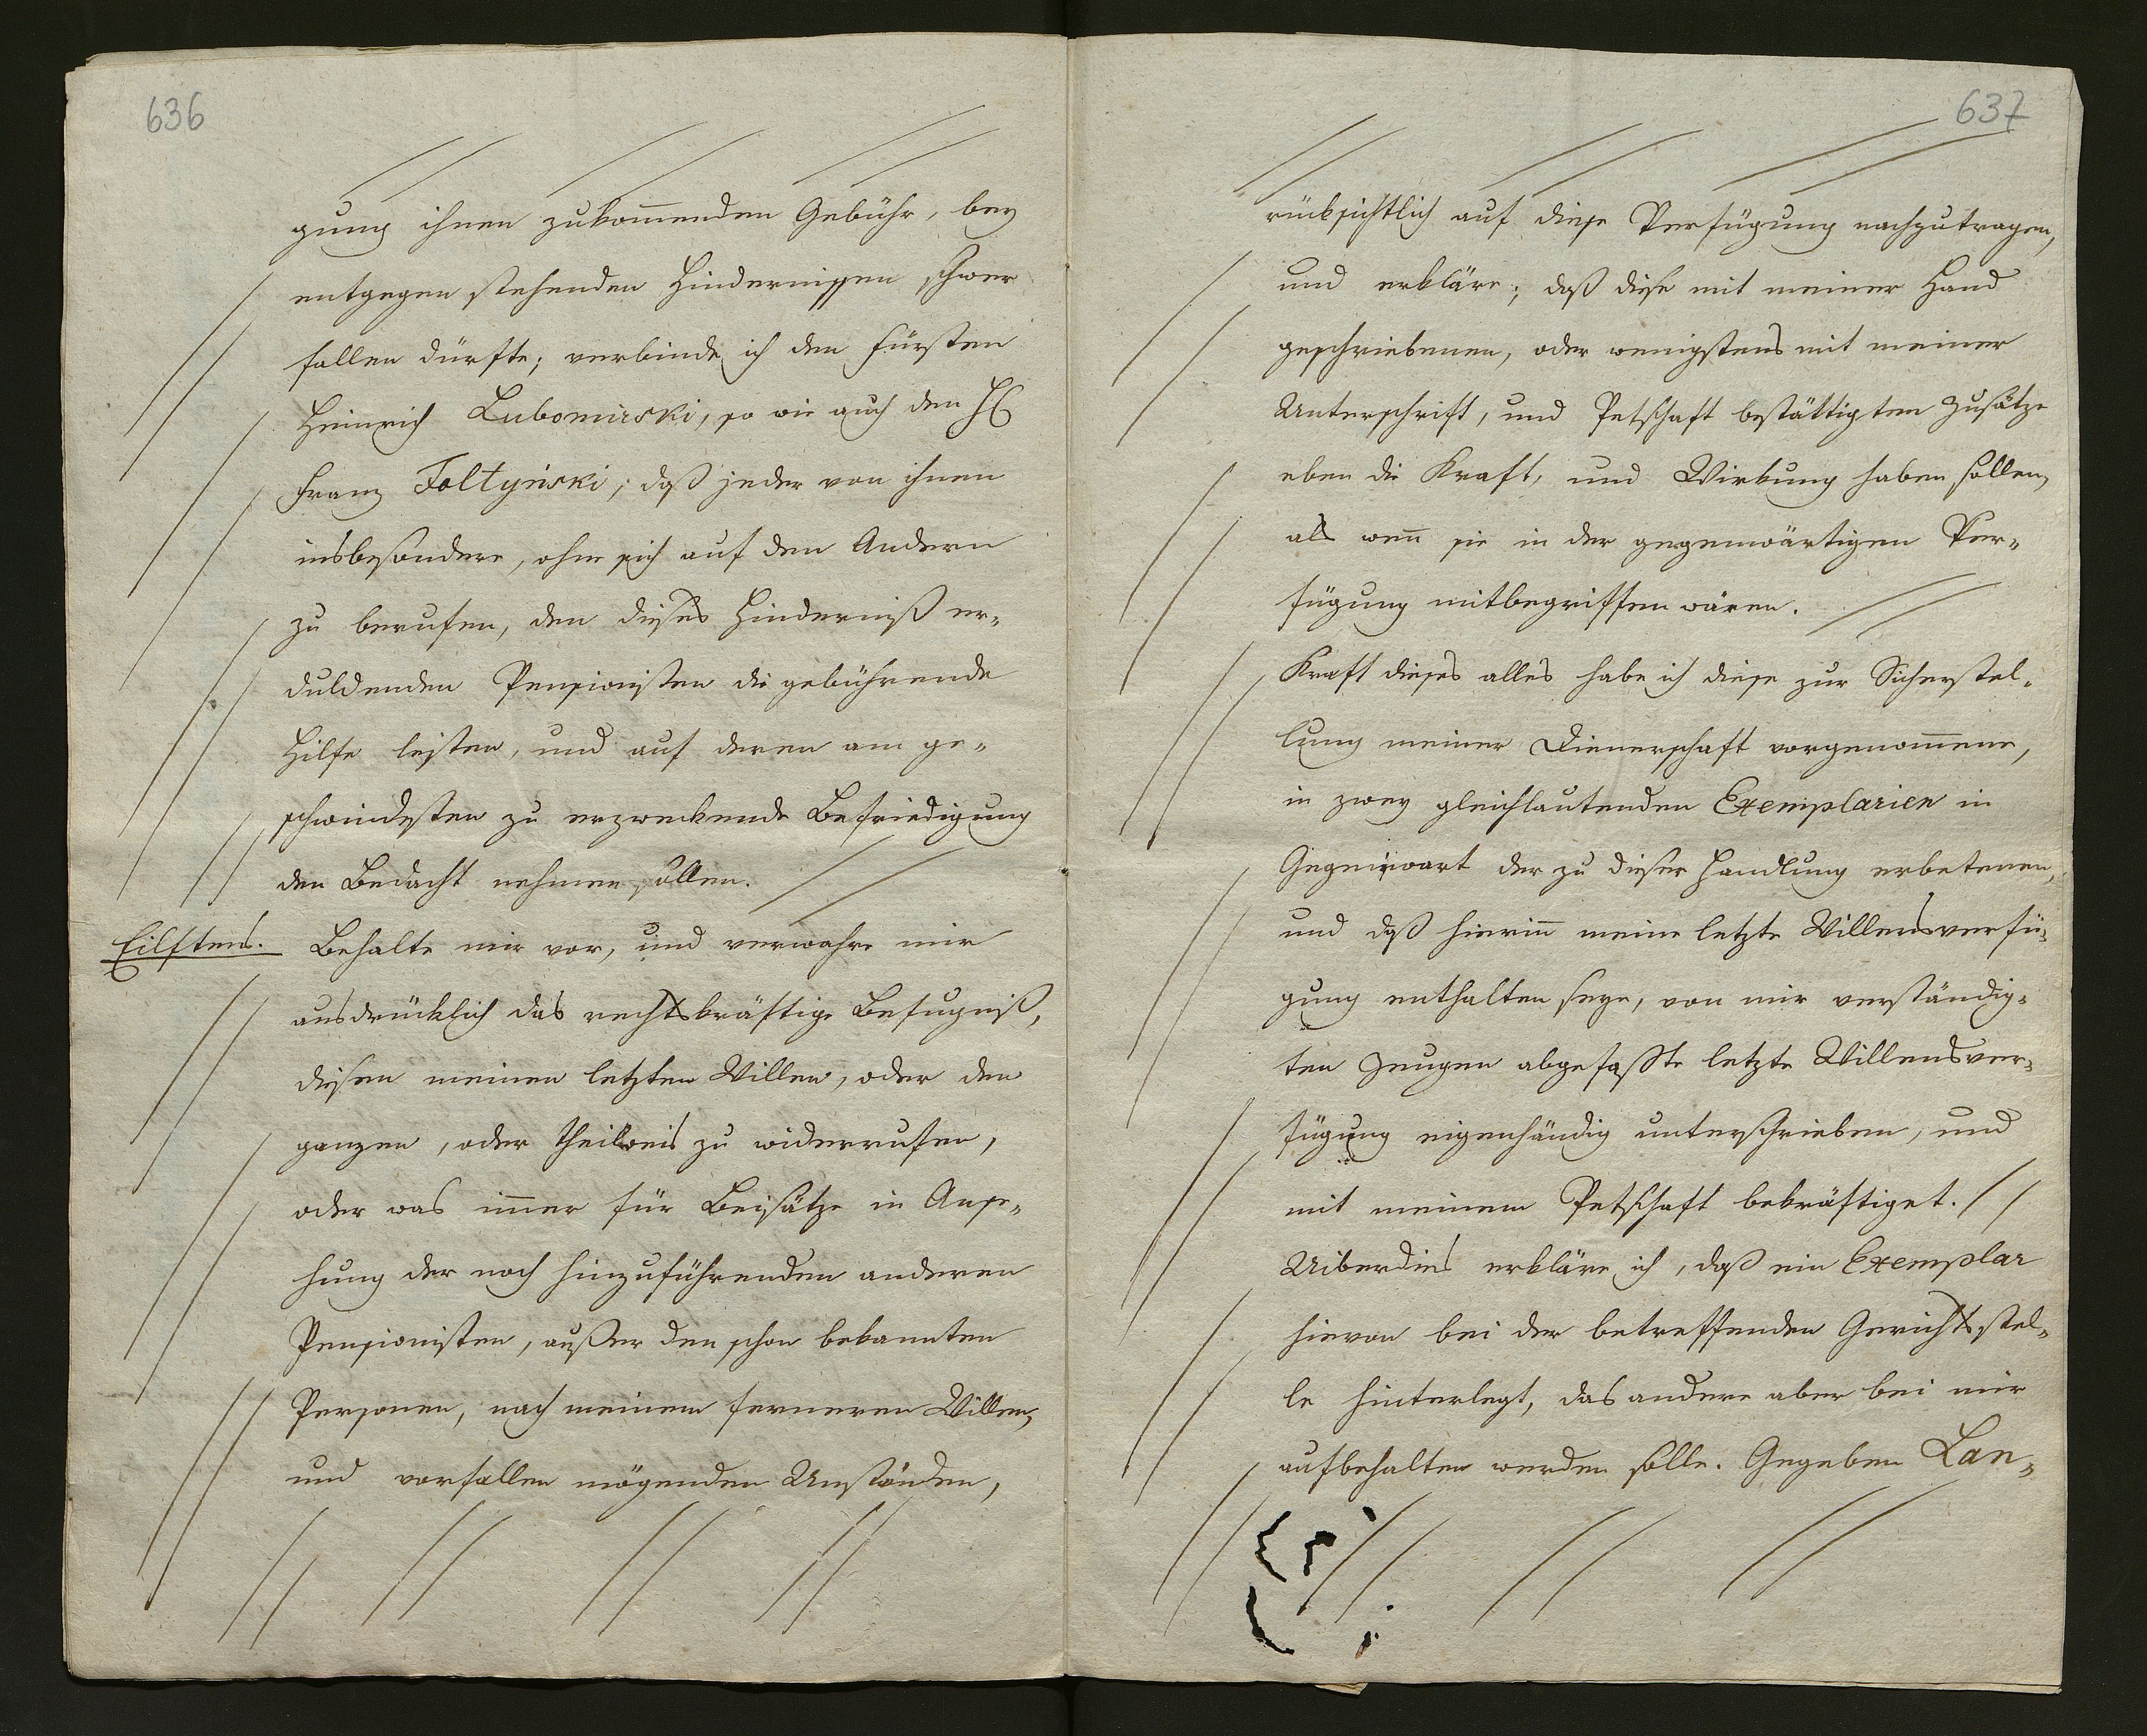 636
gung ihnen zukom̄enden Gebühr, bey
entgegen stehenden Hindernissen schwer
fallen dürfte; verbinde ich den Fürsten
Heinrich Lubomirski, so wie auch den H
Franz Foltyński, daß jeder von ihnen
insbesondere, ohne sich auf den Andern
zu berufen, den dieses Hinderniß er„
duldenden Pensionisten die gebührende
Hilfe leisten, und auf deren am ge„
schwindesten zu erzweckende Befriedigung
den Bedacht nehmen sollen.
Eilftens. Behalte mir vor, und verwahre mir
ausdrücklich das rechtskräftige Befugniß,
diesen meinen letzten Willen, oder den
ganzen, oder theilweis zu widerrufen,
oder was im̄er für Beisätze in Anse„
hung der noch hinzuführenden anderen
Pensionisten, außer den schon bekannten
Personen, nach meinem ferneren Willen,
und vorfallen mögenden Umständen,
637
rücksichtlich auf diese Verfügung nachzutragen,
und erkläre; daß diese mit meiner Hand
geschriebenen, oder wenigstens mit meiner
Unterschrift, und Petschaft bestättigten Zusätze
eben die Kraft, und Wirkung haben sollen,
als wen̄ sie in der gegenwärtigen Ver„
fügung mitbegriffen wären.
Kraft dieses alles habe ich diese zur Sicherstel„
lung meiner Dienerschaft vorgenom̄ene,
in zwey gleichlautenden Exemplarien in
Gegenwart der zu dieser Handlung erbetenen,
und daß hierin̄ meine letzte Willensverfü„
gung enthalten seye, von mir verständig„
ten Zeugen abgefaßte letzte Willensver„
fügung eigenhändig unterschrieben, und
mit meinem Petschaft bekräftiget.
Uiberdies erkläre ich, daß ein Exemplar
hievon bei der betreffenden Gerichtsstel„
le hinterlegt, das andere aber bei mir
aufbehalten werden solle. Gegeben Lan„